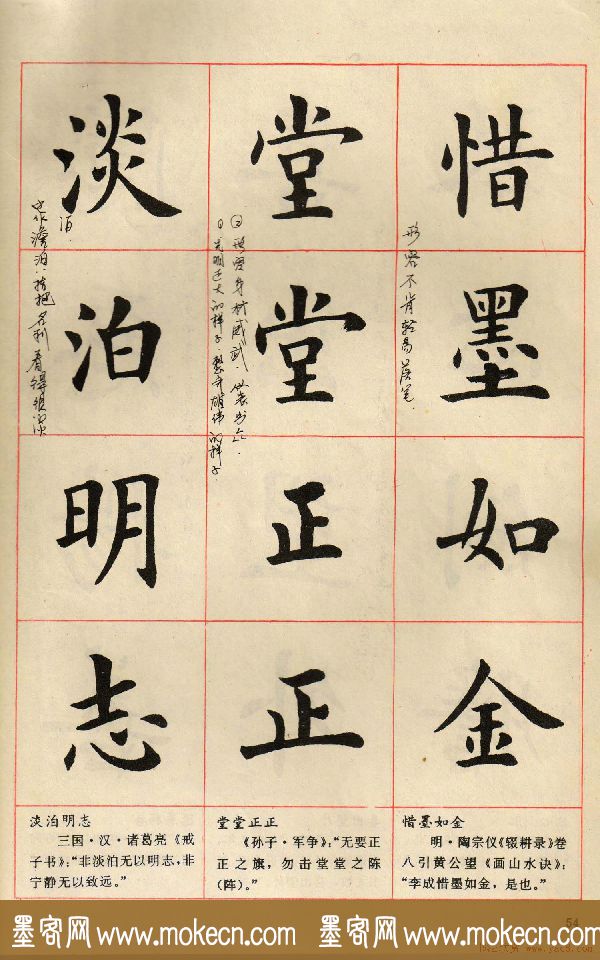 惜墨如金
形容不肯轻易落笔.
堂堂正正
形容身材威武.
淡泊明志
也作澹泊.指把名利看得很淡
惜墨如金
明·陶宗仪《辍耕录》卷
八引黄公望《画山水诀》：
“李成惜墨如金，是也。”
堂堂正正
《孙子·军争》：“无要正
正之旗，勿击堂堂之陈
（阵）。”
淡泊明志
三国·汉·诸葛亮《戒
子书》：“非淡泊无以明志，非
宁静无以致远。”
54
墨客网 www.mokecn.com 墨客网 www.mokecn.com